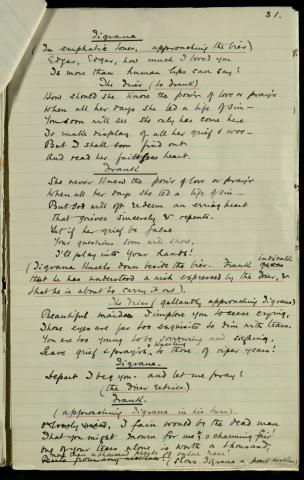 31.
Tigrana
(In emphatic tones, approaching the bier)
Edgar, Edgar, how much I loved you
Is more than human lips can say!
The Friar (to Frank)
How should she know the power of love or prayer
When all her days she led a life of sin —
You soon will see she only has come here
To make display of all her grief & woe —
But I shall soon find out
And read her faithless heart.
Frank
She never knew the power of love or prayer
When all her days she led a life of sin —
But God will oft redeem an erring heart
That grieves sincerely & repents.
Yet if her grief be false
Your questions soon will show,
I'll play into your hands!
(Tigrana kneels down beside the bier. Frank indicates
that he has understood a wish expressed by the Friar, &
that he is about to carry it out).
The Friar (gallantly approaching Tigrana)
Beautiful maiden I implore you to cease crying,
Those eyes are far too exquisite to dim with tears.
You are too young to be sorrowing and sighing,
Leave grief & praying, to those of riper years!
Tigrana.
Depart I beg you and let me pray!
(the Friar retires)
Frank.
(approaching Tigrana in his turn).
I fain would be the dead man
That you might mourn for me, o charming fair
One of your tears alone is worth a thousand,
(shows Tigrana a pearl necklace)